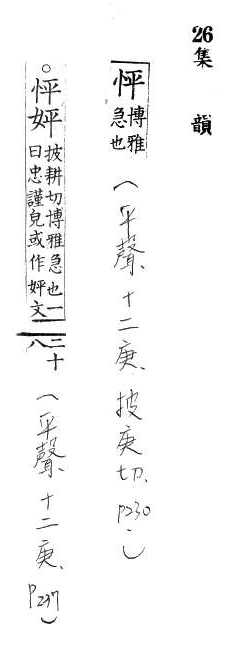 26集 韻
怦 博雅急也 (平聲、十二庚、披庚切、P230。)
○怦 披耕切博雅急也一曰忠謹皃或作 文二十八 (平聲、十二庚、P237)